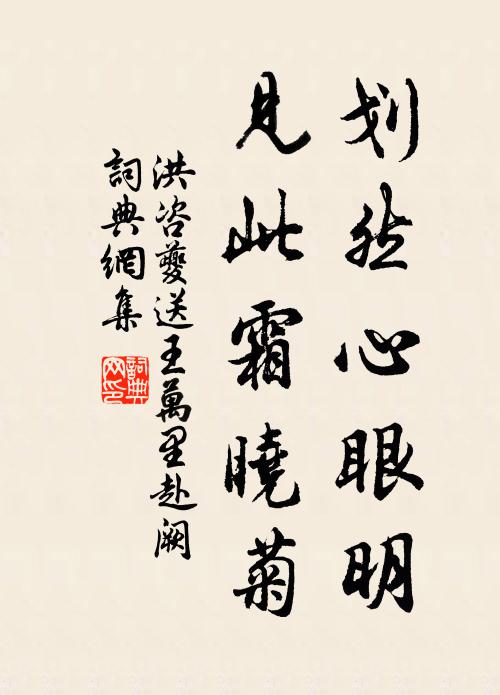 划然心眼明
見此霜曉菊
洪咨夔送王萬里赴闕
詞典網集
詞典网印